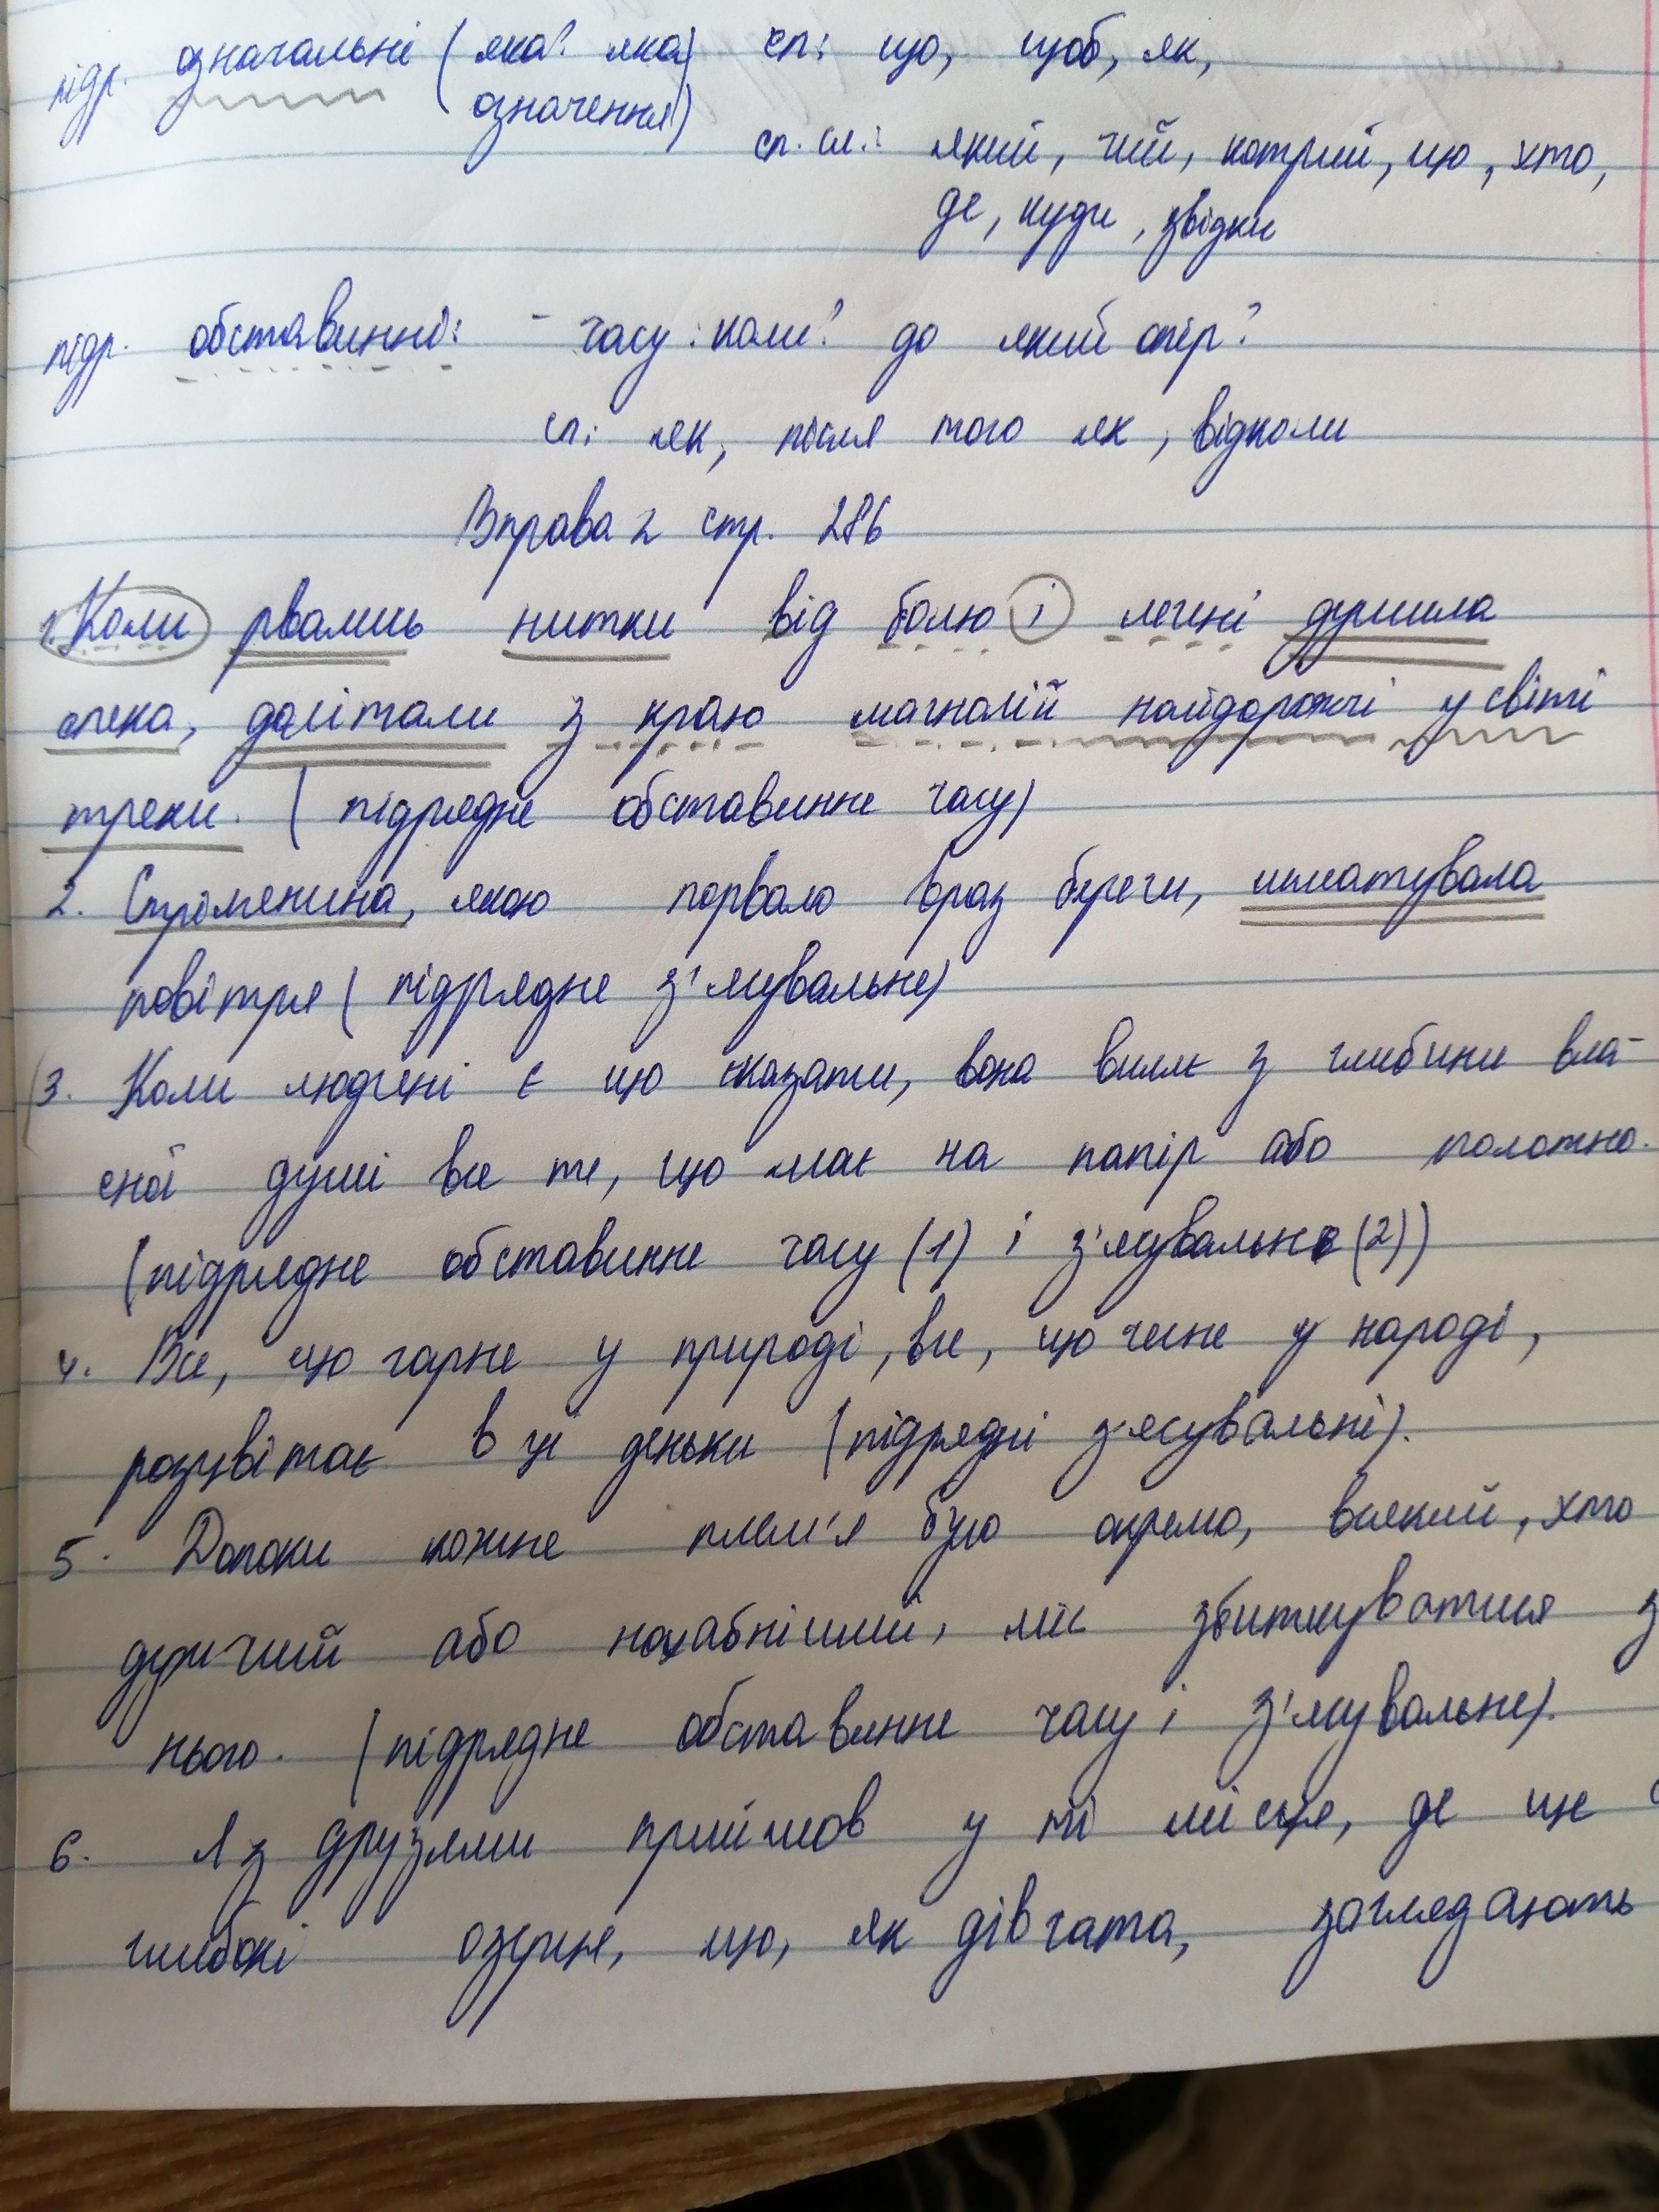 підр. означальні (яка? яка) сп: що, щоб, як,
означення)
сп. сл.: який, чий, котрий, що, хто,
де, куди, звідки
підр. обставинні: - часу: коли? до який спір?
сп: як, після того як, відколи
Вправа 2 стр. 286
1. Коли рвались нитки від болю і легені душила
спека, долітали з краю магнолій найдорожчі у світі
треки. (підрядне обставинне часу)
2. Стрілянина, якою порвало враз береги, шматувала
повітря (підрядне з'ясувальне)
3. Коли людині є що сказати, вона виллє з глибини вла-
сної душі все те, що має на папір або полотно.
(підрядне обставинне часу (1) і з'ясувальне (2))
4. Все, що гарне у природі, все, що чесне у народі,
розцвітає в ці деньки (підрядні з'ясувальні).
5. Допоки кожне плем'я було окремо, всякий, хто
дужчий або нахабніший, міг збиткуватися з
нього. (підрядне обставинне часу і з'ясувальне).
6. Я з друзями прийшов у ті місця, де ще
глибокі озерця, що, як дівчата, заглядають